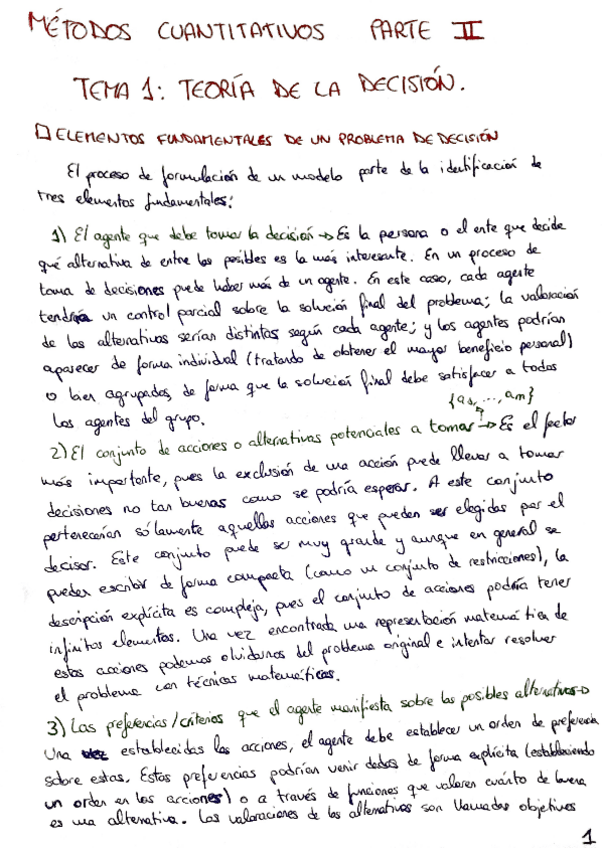 MÉTODOS CUANTITATIVOS PARTE II
TEMA 1: TEORÍA DE LA DECISIÓN.
ELEMENTOS FUNDAMENTALES DE UN PROBLEMA DE DECISIÓN
El proceso de formulación de un modelo parte de la identificación de
tres elementos fundamentales:
1) El agente que debe tomar la decisión → Es la persona o el ente que decide
qué alternativa de entre las posibles es la más interesante. En un proceso de
toma de decisiones puede haber más de un agente. En este caso, cada agente
tendría un control parcial sobre la solución final del problema; la valoración
de las alternativas serían distintas según cada agente; y los agentes podrían
aparecer de forma individual (tratando de obtener el mayor beneficio personal)
o bien agrupados, de forma que la solución final debe satisfacer a todos
los agentes del grupo.
{a1, ..., am}
2) El conjunto de acciones o alternativas potenciales a tomar → Es el factor
más importante, pues la exclusión de una acción puede llevar a tomar
decisiones no tan buenas como se podría esperar. A este conjunto
pertenecerían sólamente aquellas acciones que pueden ser elegidas por el
decisor. Este conjunto puede ser muy grande y aunque en general se
pueden escribir de forma compacta (como un conjunto de restricciones), la
descripción explícita es compleja, pues el conjunto de acciones podría tener
infinitos elementos. Una vez encontrada una representación matemática de
estas acciones podemos olvidarnos del problema original e intentar resolver
el problema con técnicas matemáticas.
3) Las preferencias/criterios que el agente manifiesta sobre las posibles alternativas →
Una vez establecidas las acciones, el agente debe establecer un orden de preferencia
sobre estas. Estas preferencias podrían venir dadas de forma explícita (estableciendo
un orden en las acciones) o a través de funciones que valoren cuánto de buena
es una alternativa. Las valoraciones de las alternativas son llamadas objetivos
1